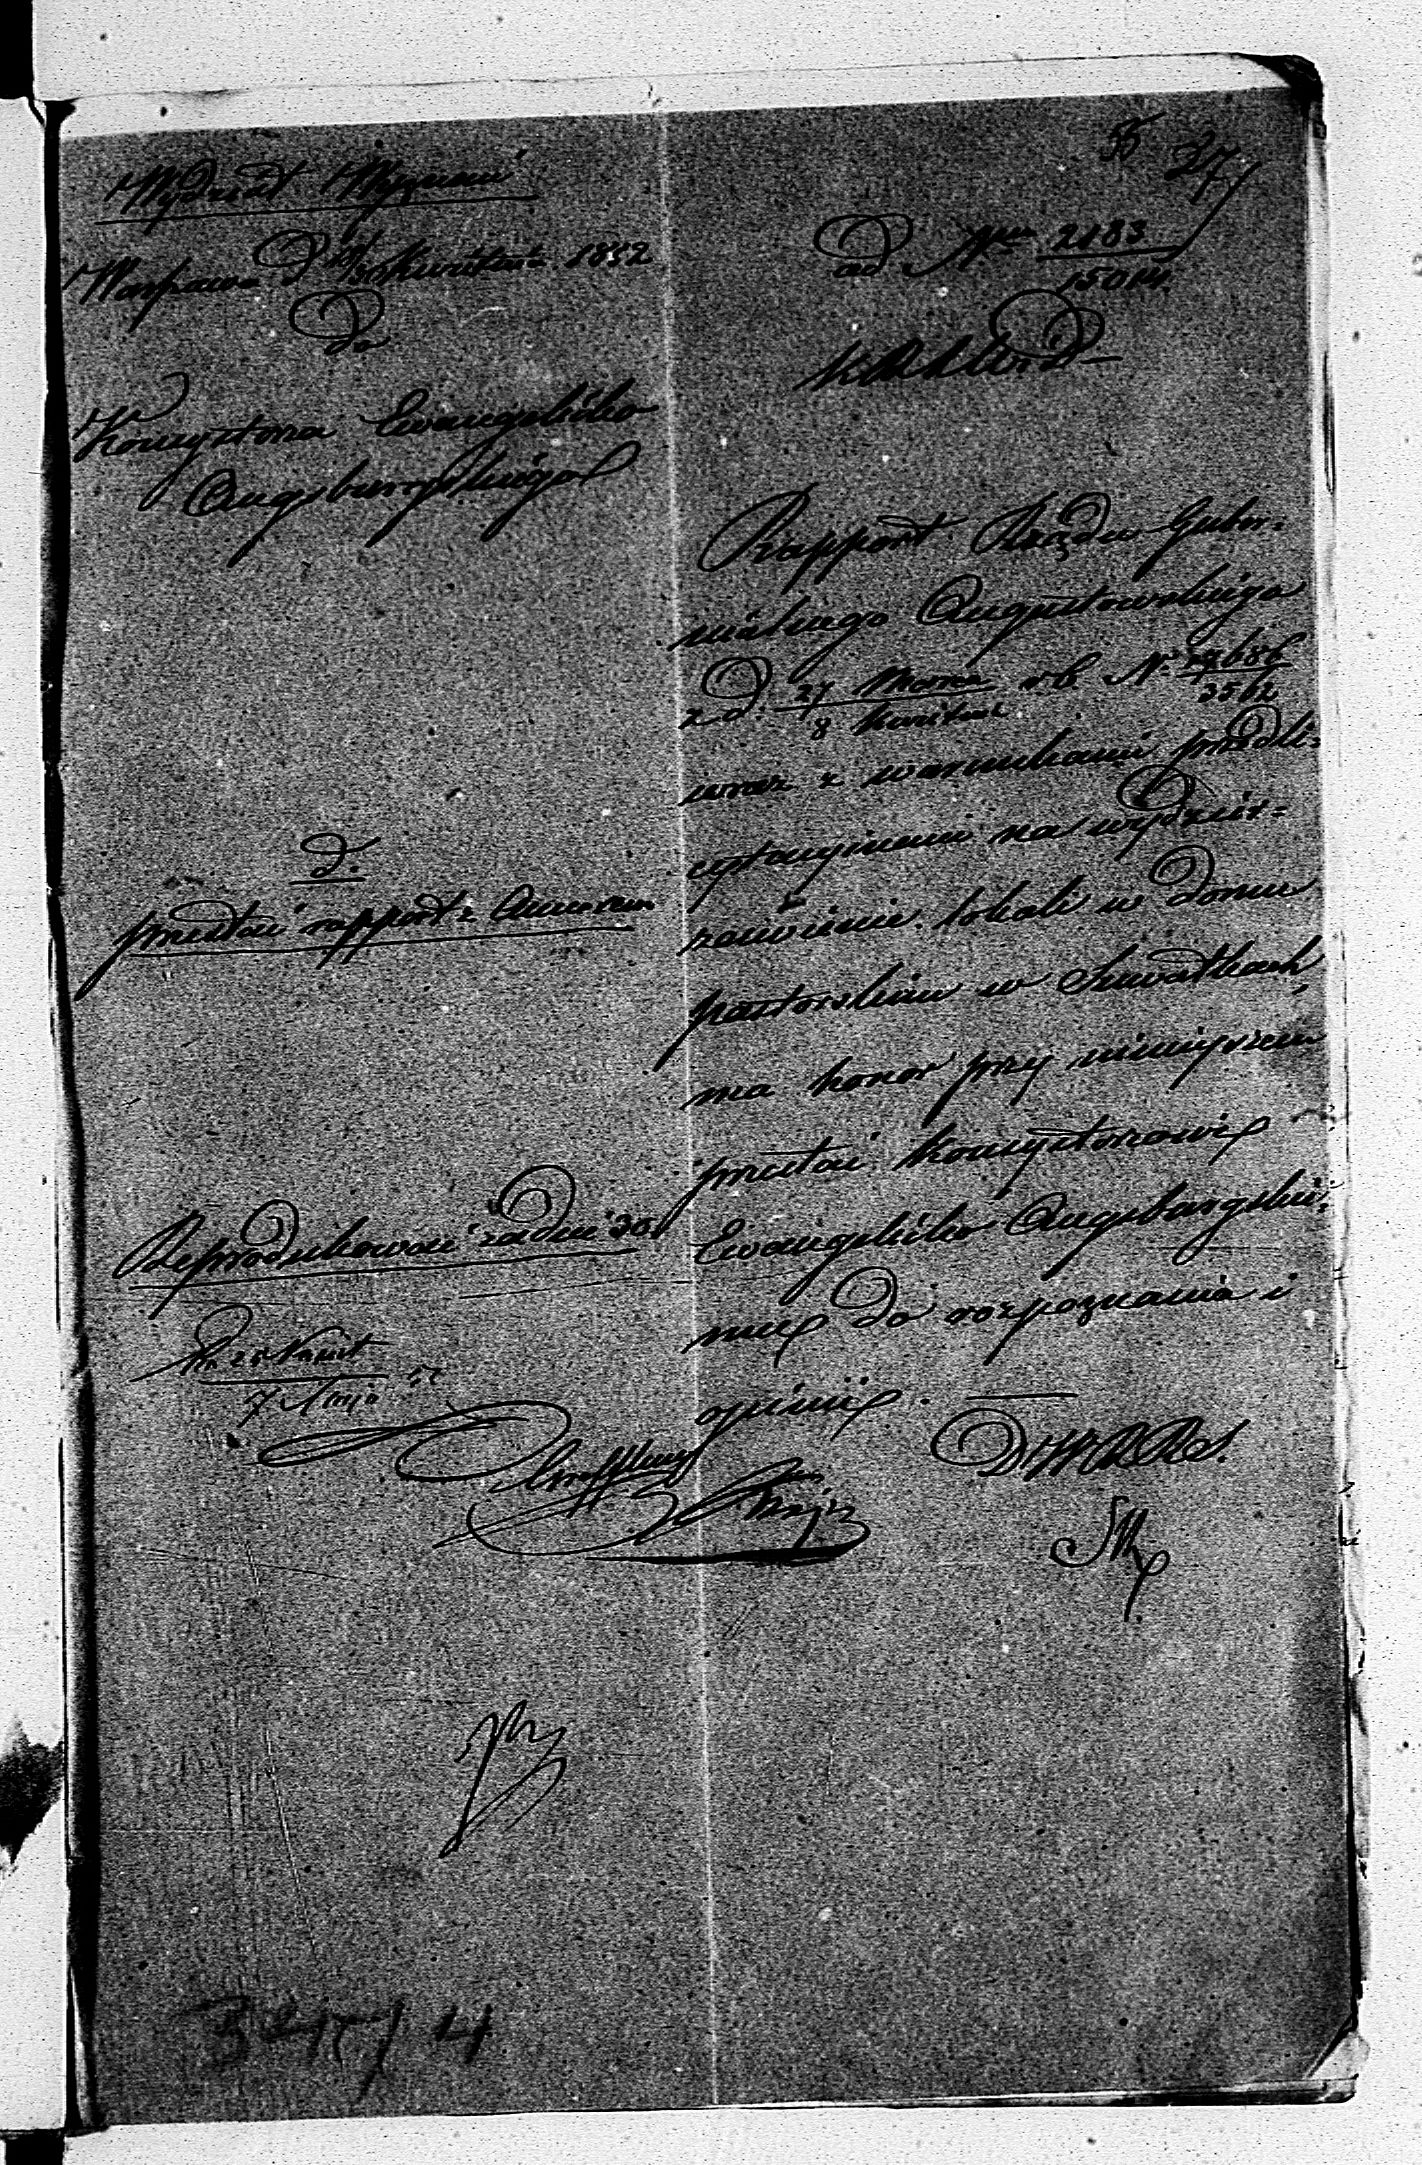 Wydział Wyznań
Warszawa d Kwietnia 1852
do
Konsystorza Ewangelicko
Augsburgskiego
d.
przesłać rapport z Annexum
Reprodukować za dni 30.
7 Maja 52
ad Nrum 2183/15014.
Rapport Rządu Guber=
nialnego Augustowskiego
z d. 27 Marca/8 Kwietnia r.b. N. /3562
wraz z warunkami przedli=
cytacyjnemi na wydzier=
żawienie lokali w domu
pastorskim w Suwałkach
ma honor przy niniejszem
przesłać Konsystorzowi
Ewangelicko Augsburgskie=
mu do rozpoznania i
opinii.